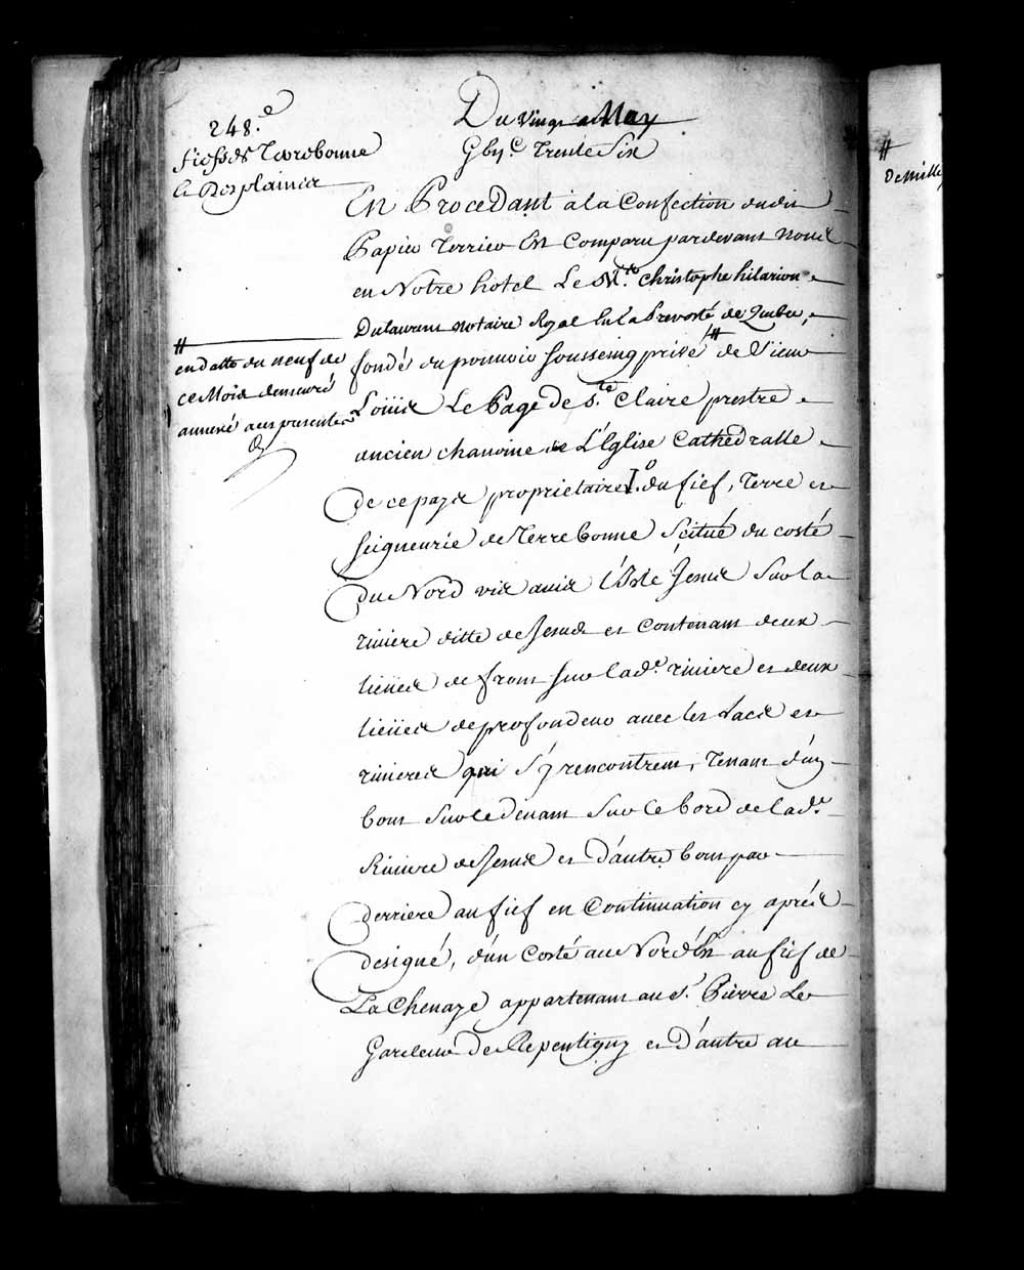 248.e
fiefs de Terrebonne
& Desplaines
Du vingt May
Gbijc. Trente Six
En Procedant à la Confection dudit
Papier Terrier Est Comparu pardevant Nous
en Notre hotel Le Mtre Christophe hilarion
Dulaurent notaire Royal En la Prevosté de Quebec,
fondé du pouvoir soussein privé # de Sieur
#
en datte du neuf de
ce Mois demeuré
annexé aux presentes
Loüis Le Page de Ste. Claire prestre
ancien chanoine de L'Eglise Cathedralle
de ce pays proprietaire 1.o du fief, Terre et
seigneurie de Terrebonne Scitué du costé
Du Nord vis avis l'Isle Jesus Sur la
riviere ditte de Jesus et Contenant deux
lieües de front sur lade. riviere et deux
lieües de profondeur avec les Lacs et
rivieres qui s'y rencontrent, Tenant d'un
bout Sur le devant Sur le bord de lade.
Riviere de Jesus et D'autre bout par
derriere au fief en Continuation cy aprés
designé, d'un Costé au Nord Est au fief de
La Chenaye appartenant au Sr. Pierre Le
Gardeur De Repentigny et D'autre au
#
De mille